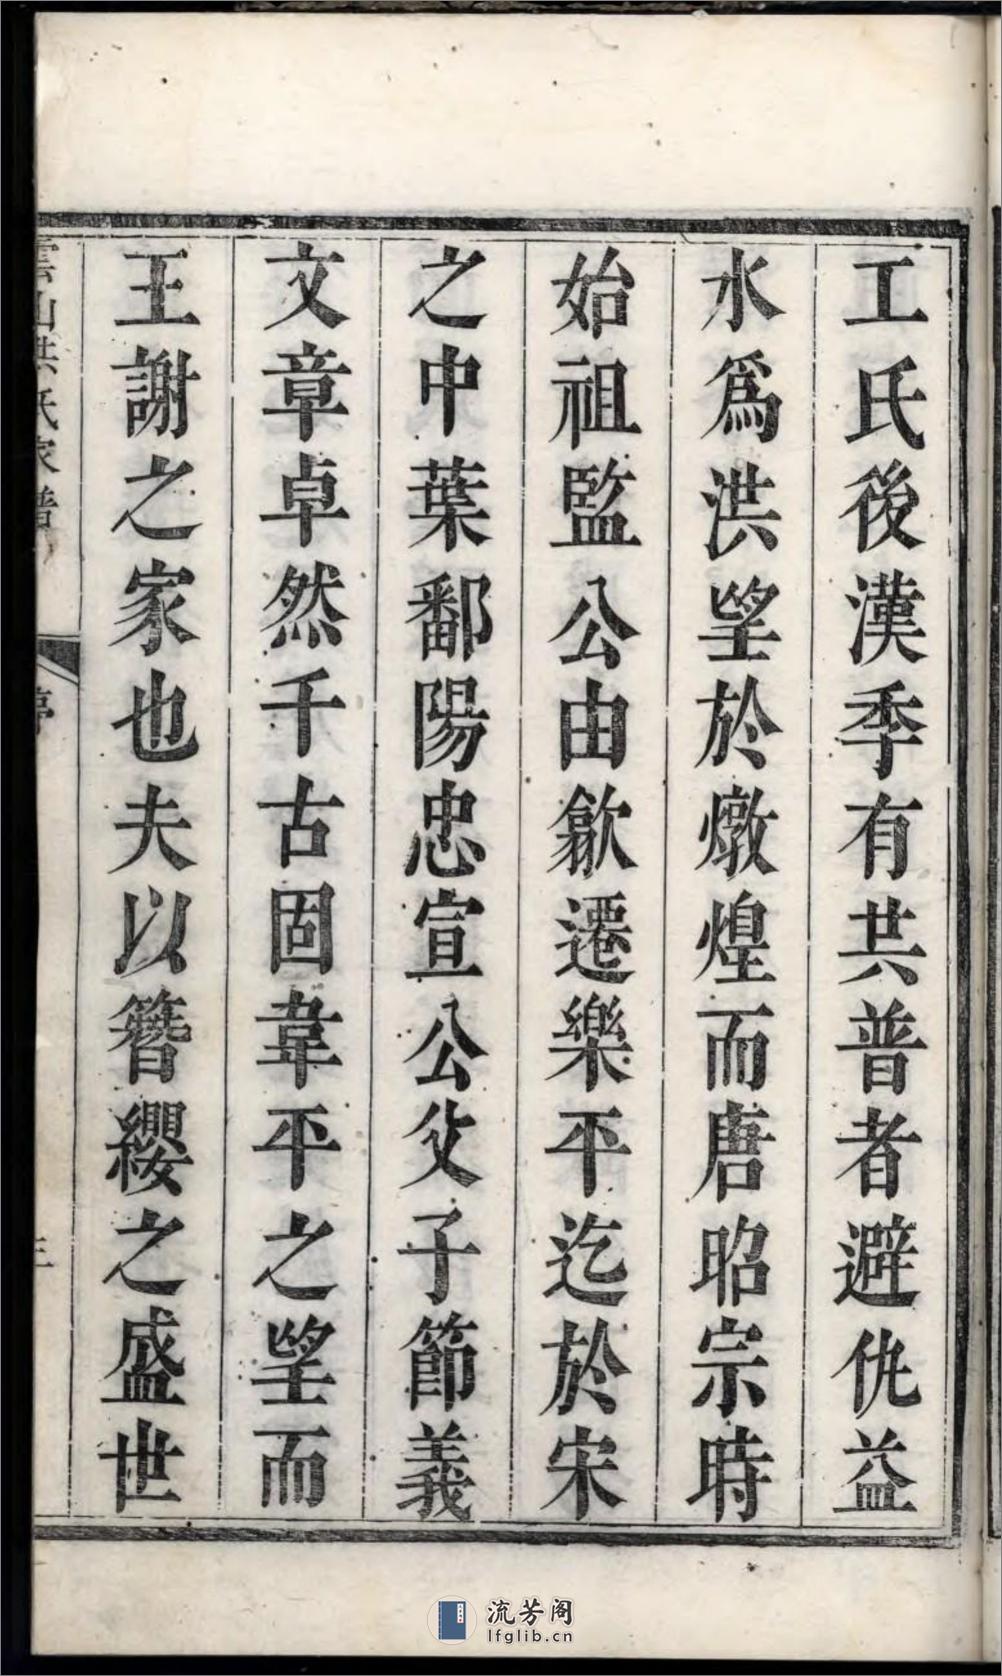 工氏後漢季有共普者避仇益
水爲洪望於燉煌而唐昭宗時
始祖監公由歙遷樂平迄於宋
之中葉鄱陽忠宣公父子節義
文章卓然千古固韋平之望而
王謝之家也夫以簪纓之盛世
雲山洪氏家譜
序
三
流芳阁
lfglib.cn